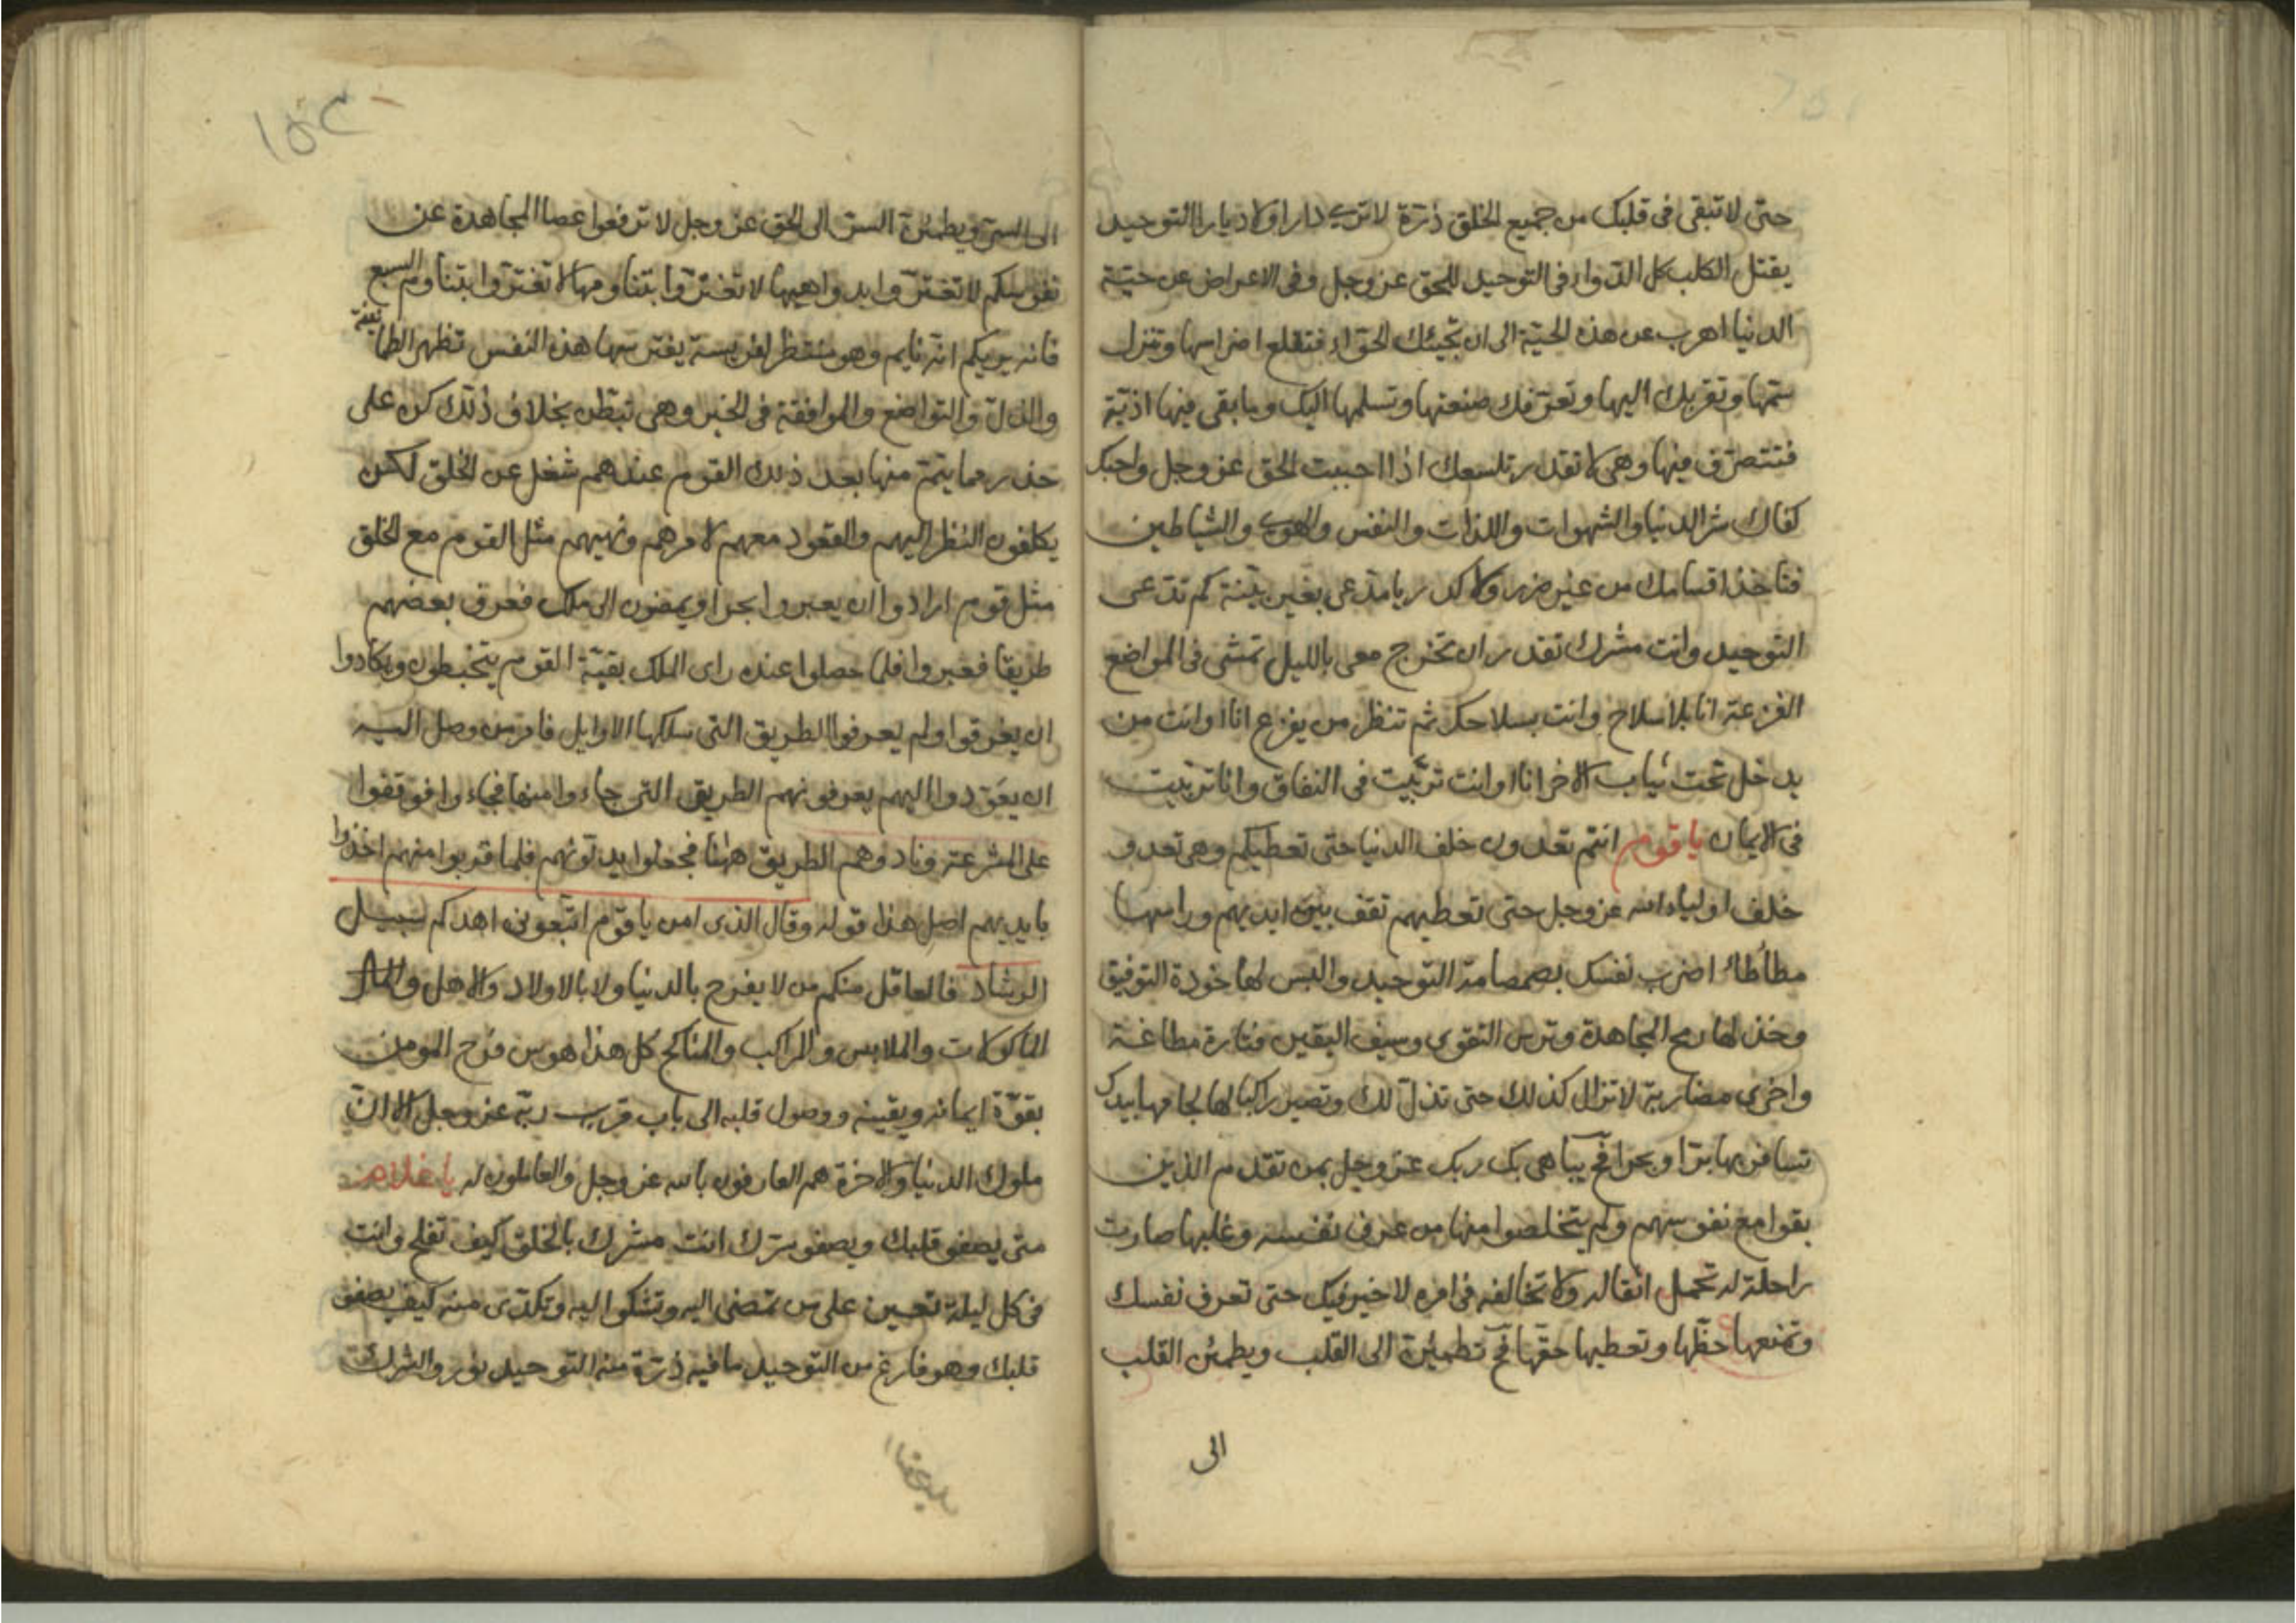 حتى لا تبقى فى قلبك من جميع الخلق ذرّة لا ترى دارا ولا ديارا التوحيد
يقتل الكلب كل الدّوا فى التوحيد للحق عز وجل وفى الاعراض عن حيّة
الدنيا اهرب عن هذه الحيّة الى ان تجيئك الحوّاء فتقلع اضراسها وتنزل
سمّها وتقربك اليها وتعرّفك صنعتها وتسلمها اليك وما بقى فيها اذيّة
فتتصرّف فيها وهى لا تقدر تلسعك اذا احببت الحق عز وجل واحبك
كفاك شر الدنيا والشهوات واللذات والنفس والهوى والشياطين
فتاخذ اقسامك من غير ضرر ولا كدر يا مدّعى بغير بيّنة كم تدّعى
التوحيد وانت مشرك تقدر ان تخرج معى بالليل تمشى فى المواضع
الفزعة انا بلا سلاح وانت بسلاحك ثم تنظر من يفزع انا او انت من
يدخل تحت ثياب الاخر انا او انت تربّيت فى النفاق وانا تربيت
فى الايمان يا قوم انتم تعدون خلف الدنيا حتى تعطيكم وهى تعدو
خلف اولياء الله عز وجل حتى تعطيهم تقف بين ايديهم وراسها
مطأطأ اضرب نفسك بصمصامة التوحيد والبس لها خودة التوفيق
وخذ لها رمح المجاهدة وترس التقوى وسيف اليقين فتارة مطاعنة
واخرى مضاربة لا تزال كذلك حتى تذلّ لك وتصير راكبا لها لجامها بيدك
تسافر بها برّا وبحرا فح يباهى بك ربك عز وجل بمن تقدم الذين
بقوا مع نفوسهم ولم يتخلصوا منها من عرف نفسه وغلبها صارت
راحلة له تحمل اثقاله ولا تخالفه فى امره لا خير فيك حتى تعرف نفسك
وتمنعها حظّها وتعطيها حقّها فح تطمئن الى القلب ويطمئن القلب
الى
الى السرّ ويطمئن السرّ الى الحق عز وجل لا ترفعوا عصا المجاهدة عن
نفوسكم لا تغترّوا بدواهيها لا تغترّوا بتناومها لا تغترّوا بتناوم السبع
فانه يريكم انّه نايم وهو منتظر لفريسة يفترسها هذه النفس تظهر الطمانينة
والذلّ والتواضع والموافقة فى الخير وهى تبطن بخلاف ذلك كن على
حذر مما يتمّ منها بعد ذلك القوم عندهم شغل عن الخلق لكن
يكلفون النظر اليهم والقعود معهم لامرهم ونهيهم مثل القوم مع الخلق
مثل قوم ارادوا ان يعبروا بحرا ويمضون الى ملك فعرف بعضهم
طريقا فعبروا فلما حصلوا عنده راى الملك بقيّة القوم يتخبطون ويكادوا
ان يغرقوا ولم يعرفوا الطريق التى سلكها الاوايل فامر من وصل اليه
ان يعودوا اليهم يعرفونهم الطريق التى جاءوا منها فجاءوا فوقفوا
على المشرعة ونادوهم الطريق ههنا فجعلوا يدلّونهم فلما قربوا منهم اخذوا
بايديهم اصل هذا قوله وقال الذى امن يا قوم اتبعون اهدكم سبيل
الرشاد فالعاقل منكم من لا يفرح بالدنيا ولا بالاولاد والاهل والمال
الماكولات والملابس والمراكب والمناكح كل هذا هوس فرح المومن
بقوّة ايمانه ويقينه ووصول قلبه الى باب قرب ربّه عز وجل الا ان
ملوك الدنيا والاخرة هم العارفون بالله عز وجل والعاملون له يا غلام
متى يصفو قلبك ويصفو سرّك انت مشرك بالخلق كيف تفلح وانت
فى كل ليلة تعيين على من تمضى اليه وتشكوا اليه وتكدّى منه كيف يصفو
قلبك وهو فارغ من التوحيد ما فيه ذرّة منه التوحيد نور والشرك